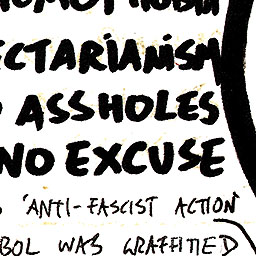 ECTARIANISM
ASSHOLES
NO EXCUSE
'ANTI-FASCIST ACTION'
BOL WAS GRAFFITIED